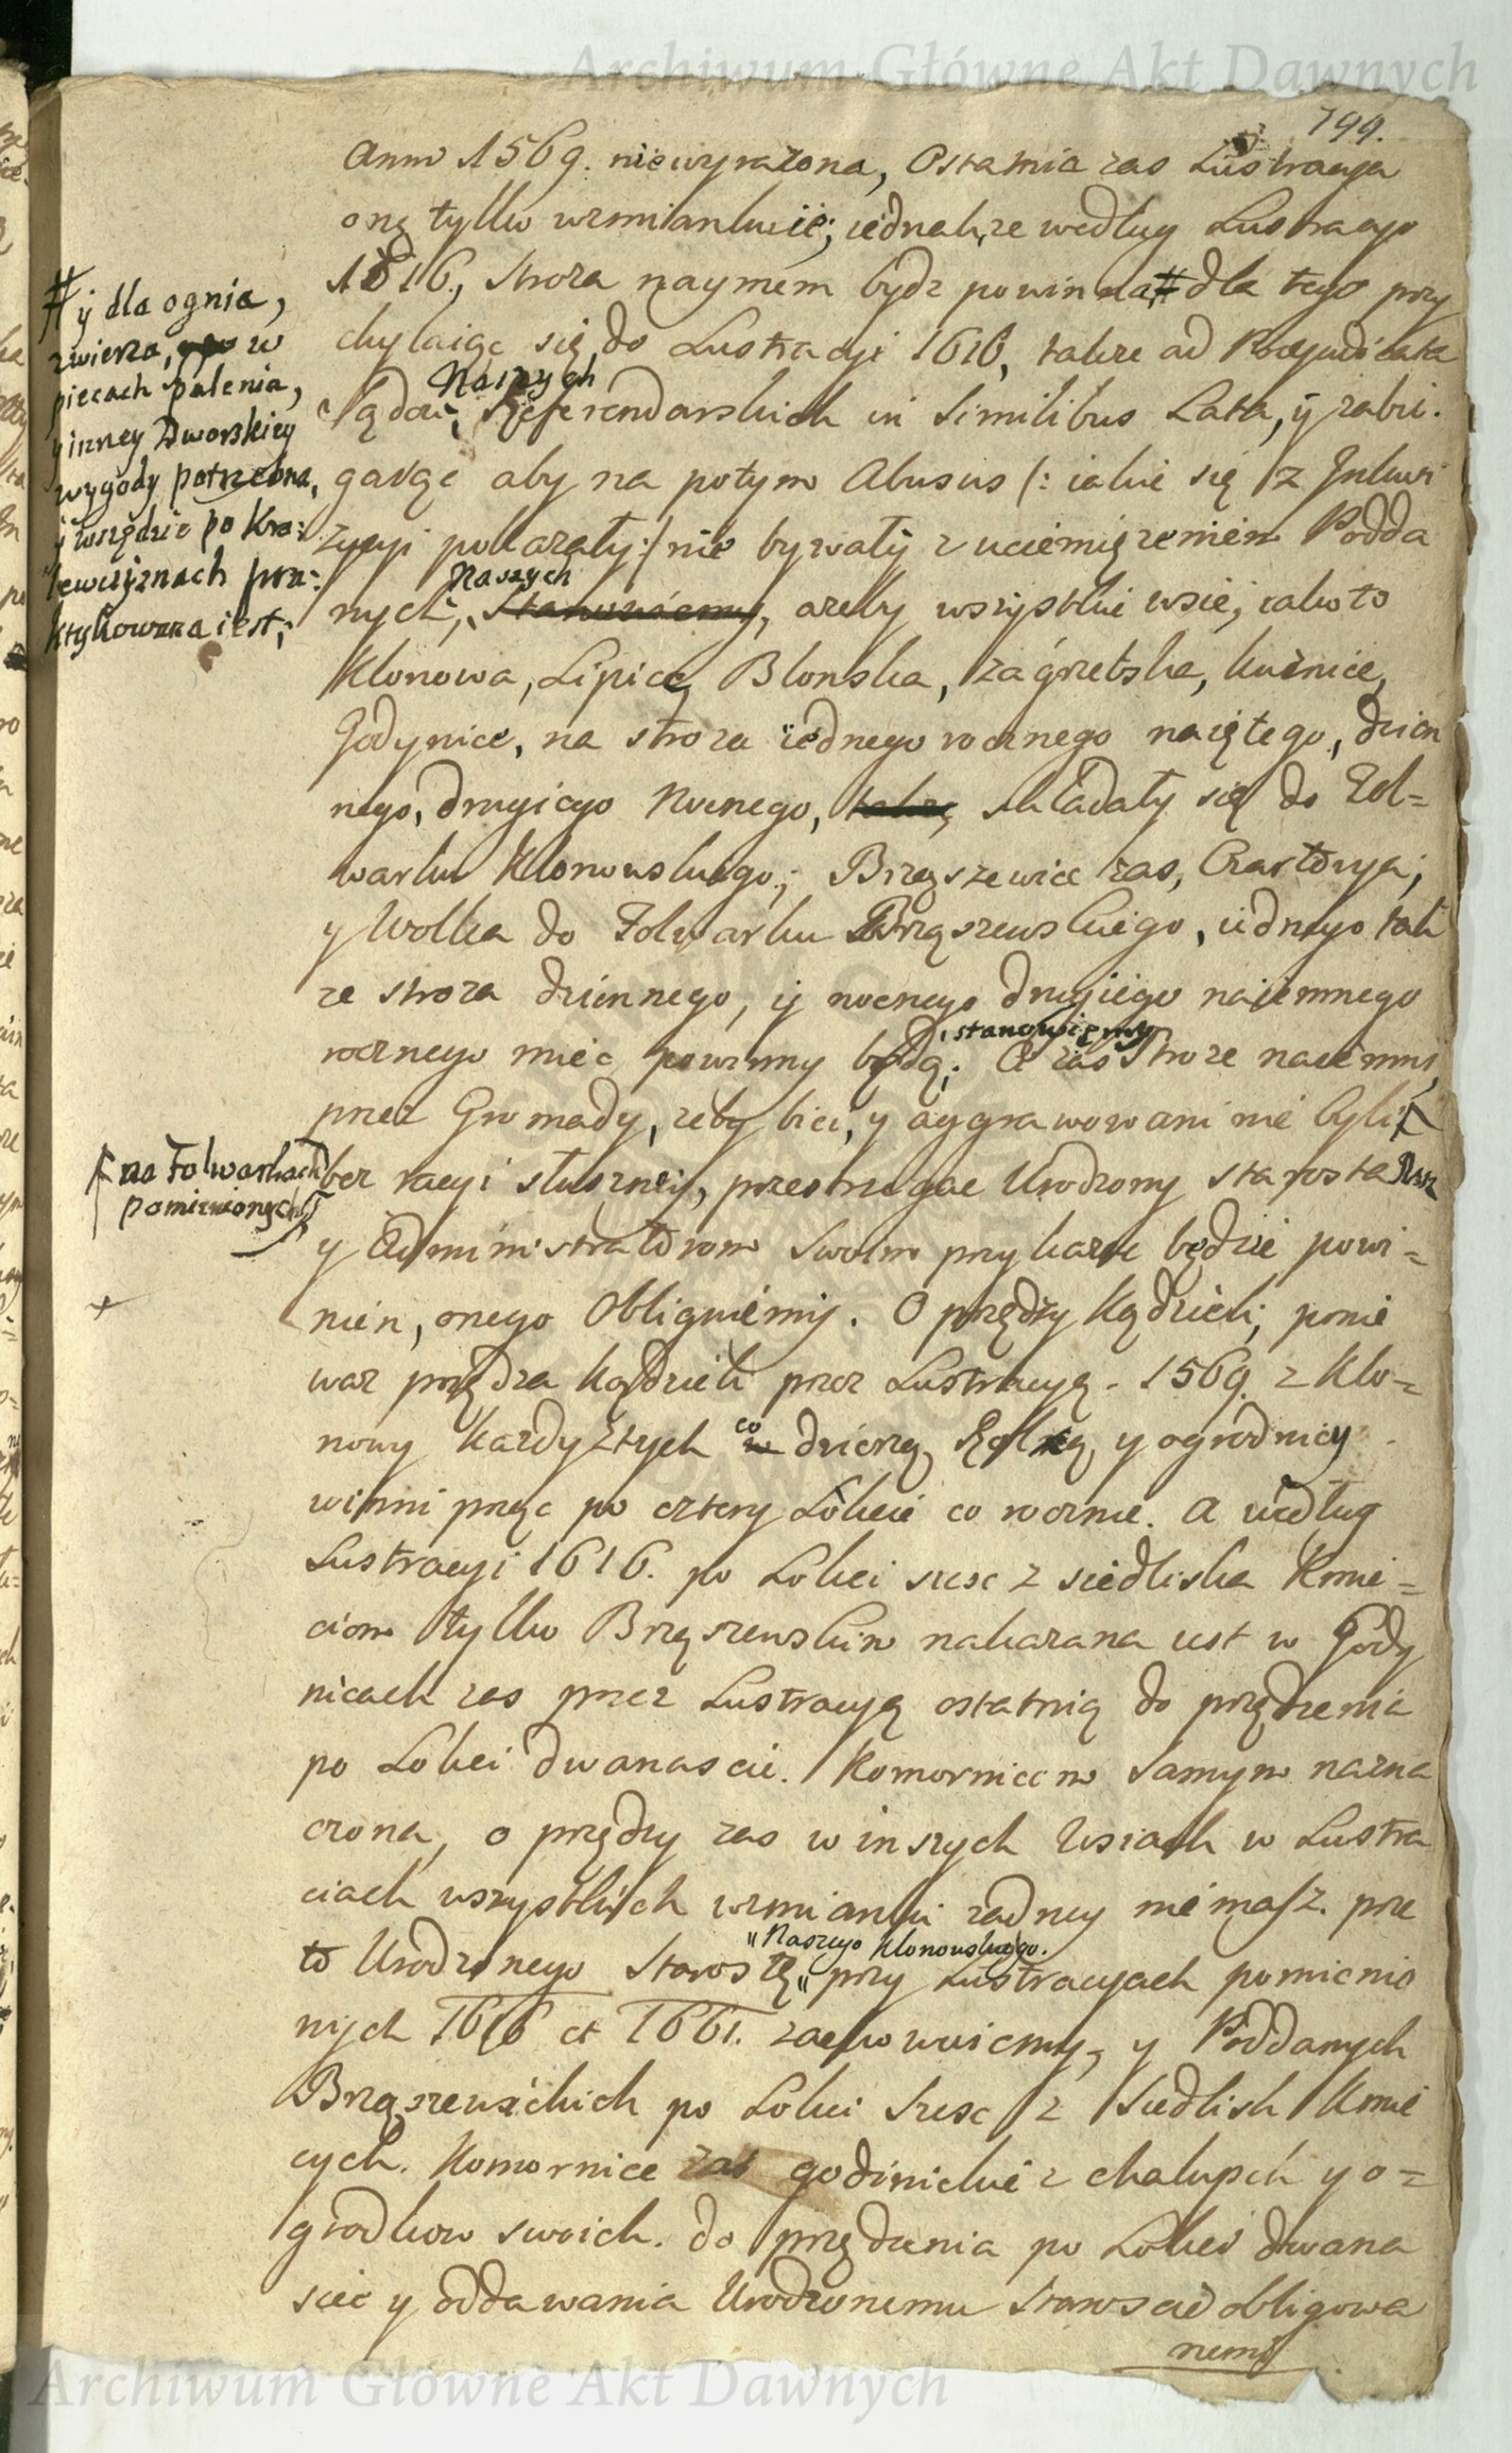 Archiwum Główne Akt Dawnych
799.
Anno 1569. niewyrazona, Ostatnia zas Lustracya
onę tylko wzmiankuie; iednakze według Lustracyi
1616., stroza naymem bydz powinna,# dla tego przy
chylaiąc się do Lustracyi 1616, takze ad Præjudicata
Naszych
Sądow, Referendarskich in Similibus Lata, y zabie.
gaiąc aby na potym Abusus /: iakie się z Inkwi
zycyi pokazały :/ nie bywały z uciemięzeniem Podda
Naszych
nych, Stanowiemy, azeby wszystkie wsie, iako to
Klonowa, Lipice, Blonska, Zagrzetske, kuznice,
Godynice, na stroza iednego rocznego naiętego, dzien
nego, drugiego Nocnego, takze składały się do Fol=
warku Klonowskiego; Brząszewice zas, Czartorya;
y Wolka do Folwarku Brząszewskiego, iednego tak
ze stroza dziennego, y nocnego drugiego naiemnego
stanowiemy
rocznego miec powinny będą; A zas Stroze naiemni
przez Gromady, zeby bici, y aggrawowani nie byli
bez racyi słuszney, przestrzegac Urodzony Starosta Nasz
y Administratorom Swoim przykazac będzie powi=
nien, onego Obliguiemy. O przędzy Kądzieli; ponie
waz przędza Kądzieli przez Lustracyą 1569. z Klo=
nowy kazdy z tych co w dzierzą Rolą y ogrodnicy
winni prząc po cztery Łokcie co rocznie. A według
Lustracyi 1616. po Łokci szesc z siedliska Kmie=
ciom tylko Brząszewskim nakazana iest w Gody
nicach zas przez Lustracyą ostatnią do przędzenia
po Łokci dwanascie. Komornicom Samym nazna
czona, o przędzy zas w inszych Wsiach w Lustra
ciach wszystkich wzmianki zadney nie masz. prze
"Naszego Klonowskiego.
to Urodzonego Starostę" przy Lustracyach pomienio
nych 1616 et 1661. zachowuiemy, y Poddanych
Brząszewickich po Łokci Szesc z Siedlisk Kmie
cych. Komornice zas godinickie z chałupek y o=
grodkow swoich. do przędzenia po Łokci dwana
scie y oddawania Urodzonemu Staroscie obligowa
nemi
# y dla ognia,
zwierza, w
piecach palenia,
y inney Dworskiey
wygody potrzebna,
y wszędzie po Kro:
lewszyznach pra:
ktykowana iest;
na Folwarkach
pomienionych
Archiwum Główne Akt Dawnych